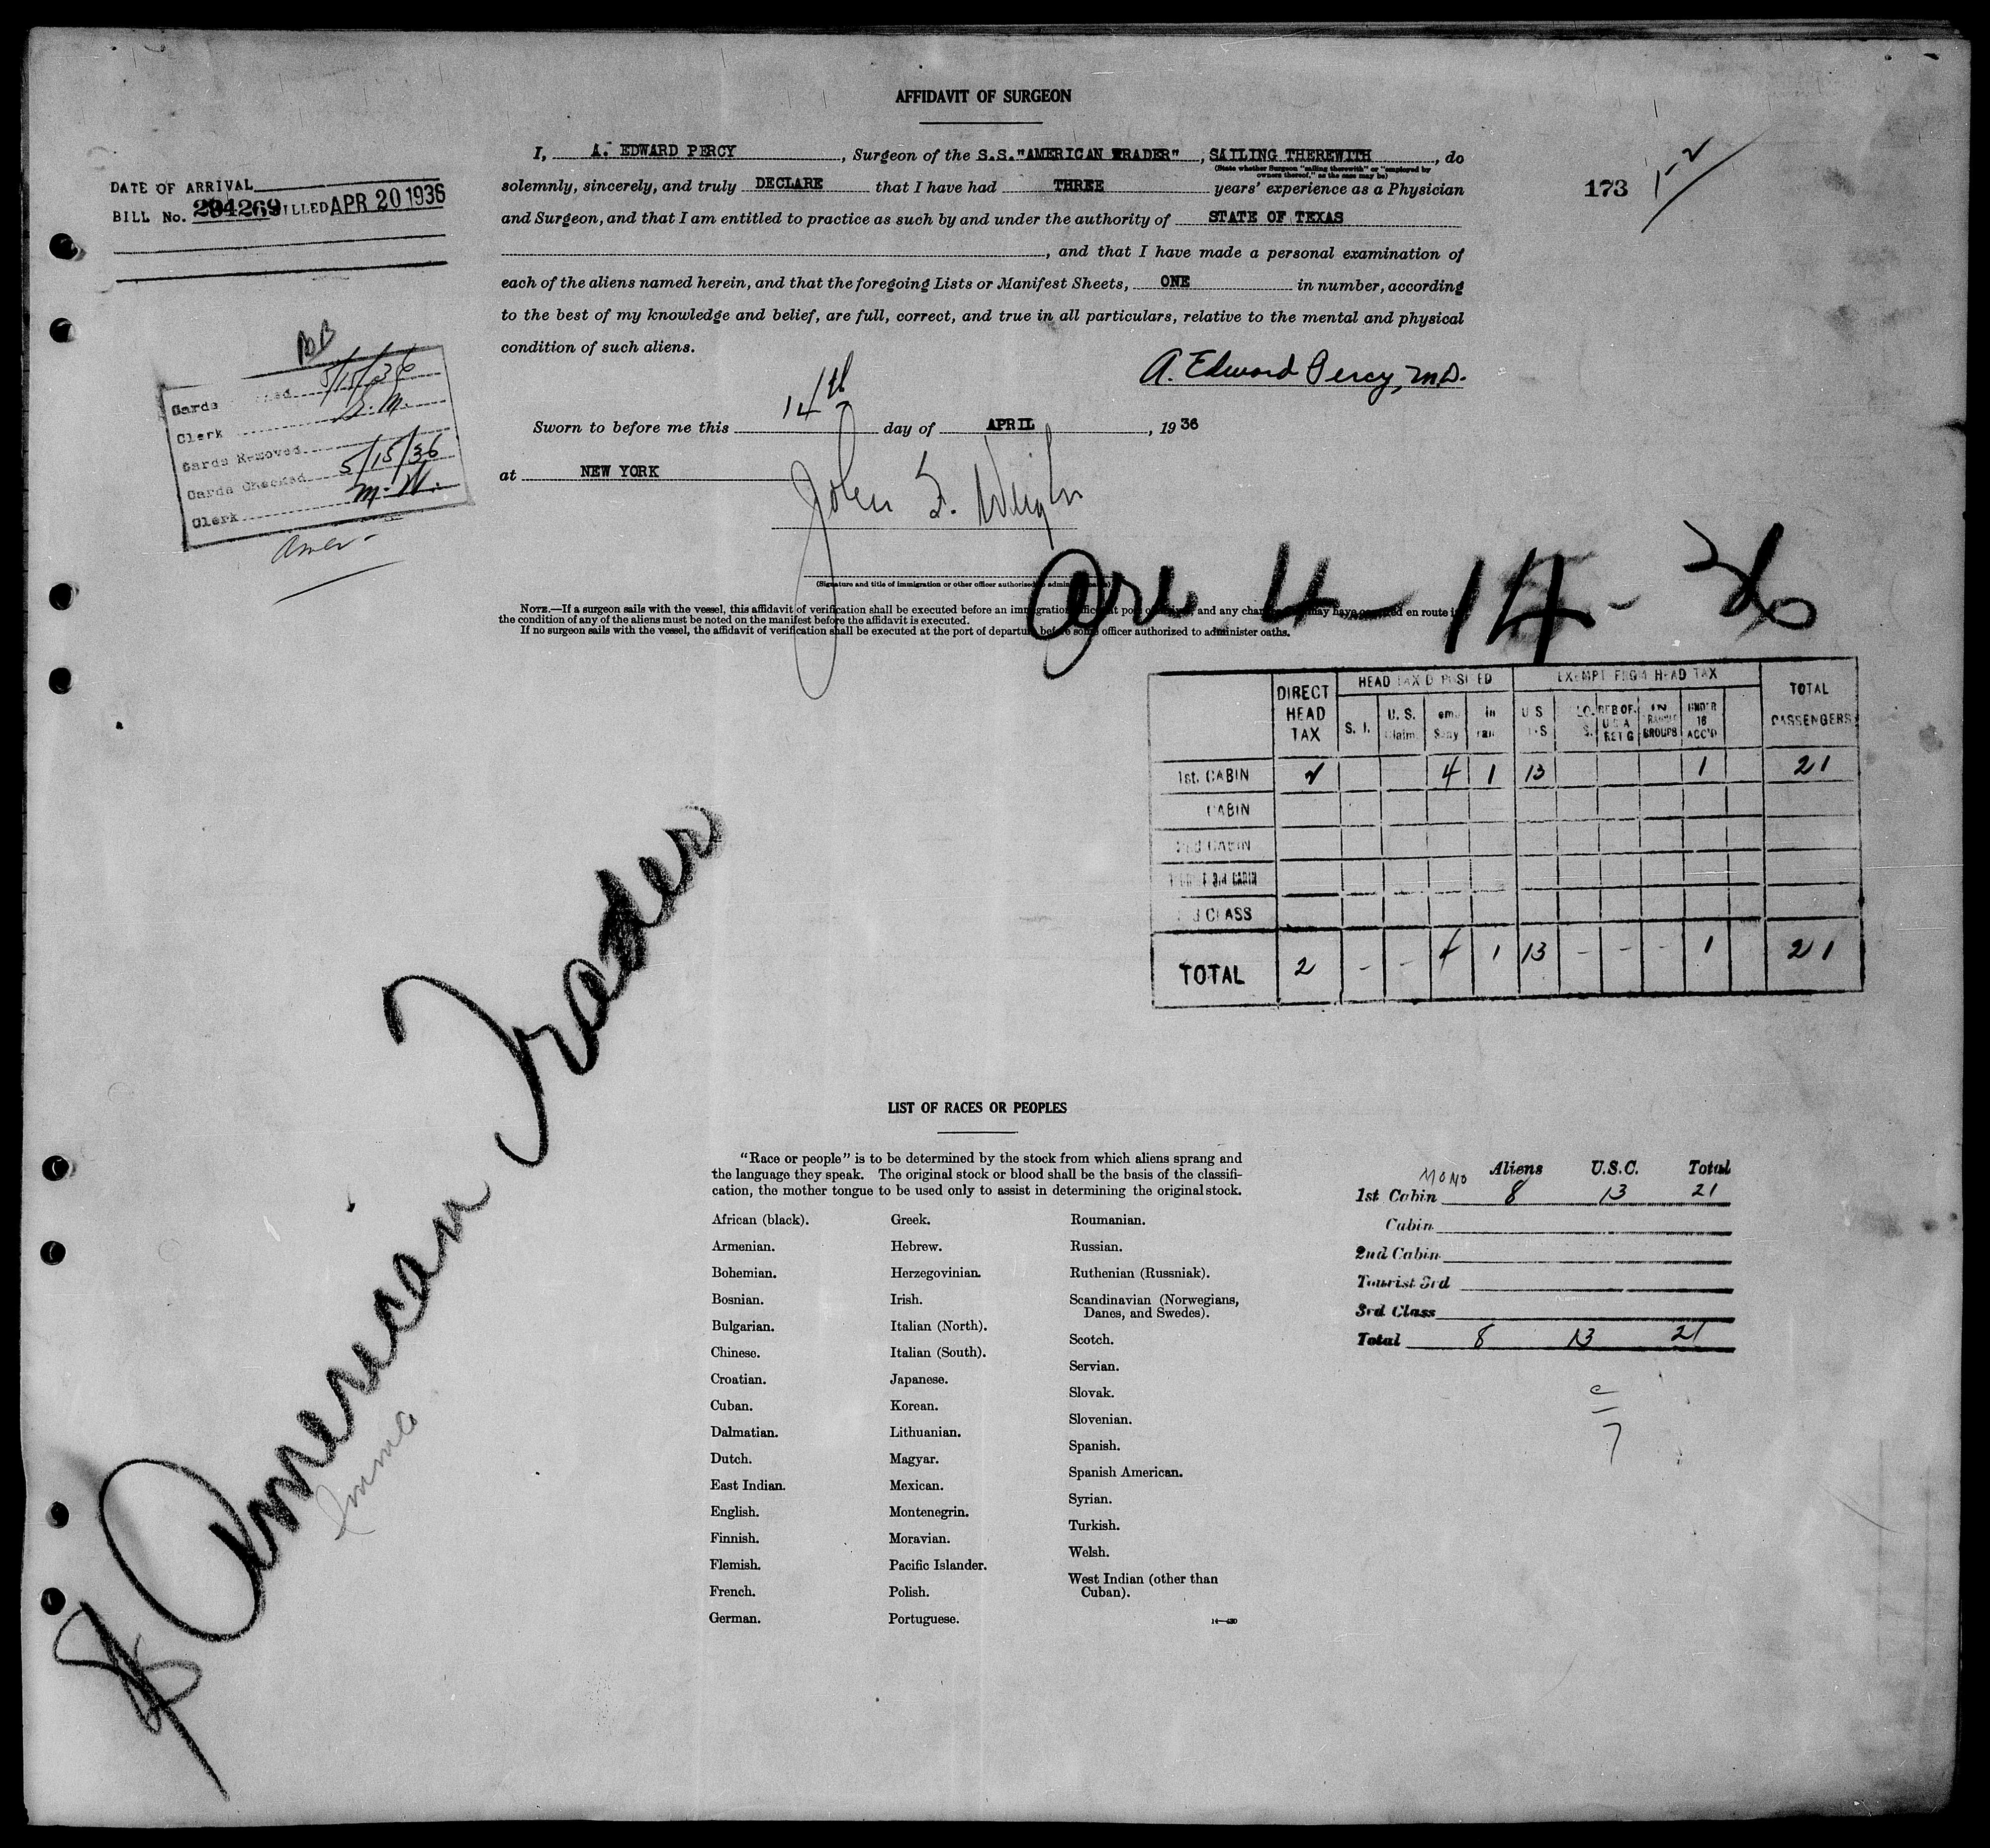 AFFIDAVIT OF SURGEON
I, A. EDWARD PERCY, Surgeon of the S.S."AMERICAN TRADER", SAILING THEREWITH, do
(State whether Surgeon "sailing therewith" or "employed by owners thereof," as the case may be)
solemnly, sincerely, and truly DECLARE that I have had THREE years' experience as a Physician
and Surgeon, and that I am entitled to practice as such by and under the authority of STATE OF TEXAS
, and that I have made a personal examination of
each of the aliens named herein, and that the foregoing Lists or Manifest Sheets, ONE in number, according
to the best of my knowledge and belief, are full, correct, and true in all particulars, relative to the mental and physical
condition of such aliens.
A. Edward Percy, M.D.
Sworn to before me this 14th day of APRIL, 1936
at NEW YORK
John F.
(Signature and title of immigration or other officer authorized to administer oaths)
NOTE.—If a surgeon sails with the vessel, this affidavit of verification shall be executed before an immigration officer at port of arrival, and any changes may have occurred en route in
the condition of any of the aliens must be noted on the manifest before the affidavit is executed.
If no surgeon sails with the vessel, the affidavit of verification shall be executed at the port of departure before some officer authorized to administer oaths.
DATE OF ARRIVAL
BILL No. 294269 BILLED APR 20 1936
173
Cards 5/15/36
Clerk S.M.
Cards Removed
Cards Checked 5/15/36
Clerk M.W.
Amer
4-14-36
DIRECT HEAD TAX HEAD TAX DEPOSITED EXEMPT FROM HEAD TAX TOTAL PASSENGERS
S. I. U. S. Claim in U S UNDER 16 ACC'D
1st. CABIN 2 4 1 13 1 21
CABIN
2nd CABIN
3rd CABIN
3rd CLASS
TOTAL 2 - - 4 1 13 - - - 1 21
American Trader
LIST OF RACES OR PEOPLES
"Race or people" is to be determined by the stock from which aliens sprang and
the language they speak. The original stock or blood shall be the basis of the classifi-
cation, the mother tongue to be used only to assist in determining the original stock.
African (black).
Armenian.
Bohemian.
Bosnian.
Bulgarian.
Chinese.
Croatian.
Cuban.
Dalmatian.
Dutch.
East Indian.
English.
Finnish.
Flemish.
French.
German.
Greek.
Hebrew.
Herzegovinian.
Irish.
Italian (North).
Italian (South).
Japanese.
Korean.
Lithuanian.
Magyar.
Mexican.
Montenegrin.
Moravian.
Pacific Islander.
Polish.
Portuguese.
Roumanian.
Russian.
Ruthenian (Russniak).
Scandinavian (Norwegians,
Danes, and Swedes).
Scotch.
Servian.
Slovak.
Slovenian.
Spanish.
Spanish American.
Syrian.
Turkish.
Welsh.
West Indian (other than
Cuban).
MONO Aliens U.S.C. Total
1st Cabin 8 13 21
Cabin
2nd Cabin
Tourist 3rd
3rd Class
Total 8 13 21